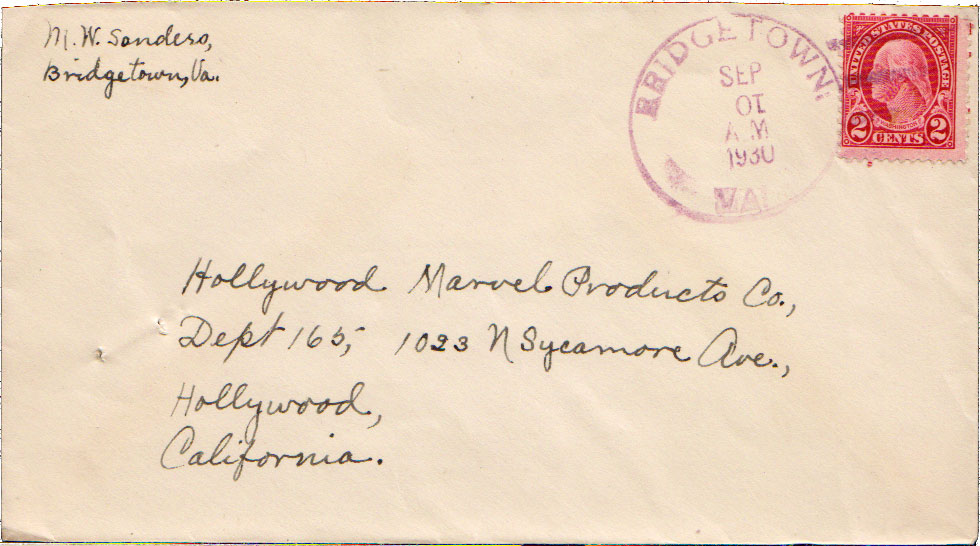 M. W. Sanders,
Bridgetown, Va.
BRIDGETOWN,
SEP
01
A.M
1930
VA.
UNITED STATES POSTAGE
WASHINGTON
2 CENTS 2
Hollywood Marvel Products Co.,
Dept 165, 1023 N Sycamore Ave.,
Hollywood,
California.